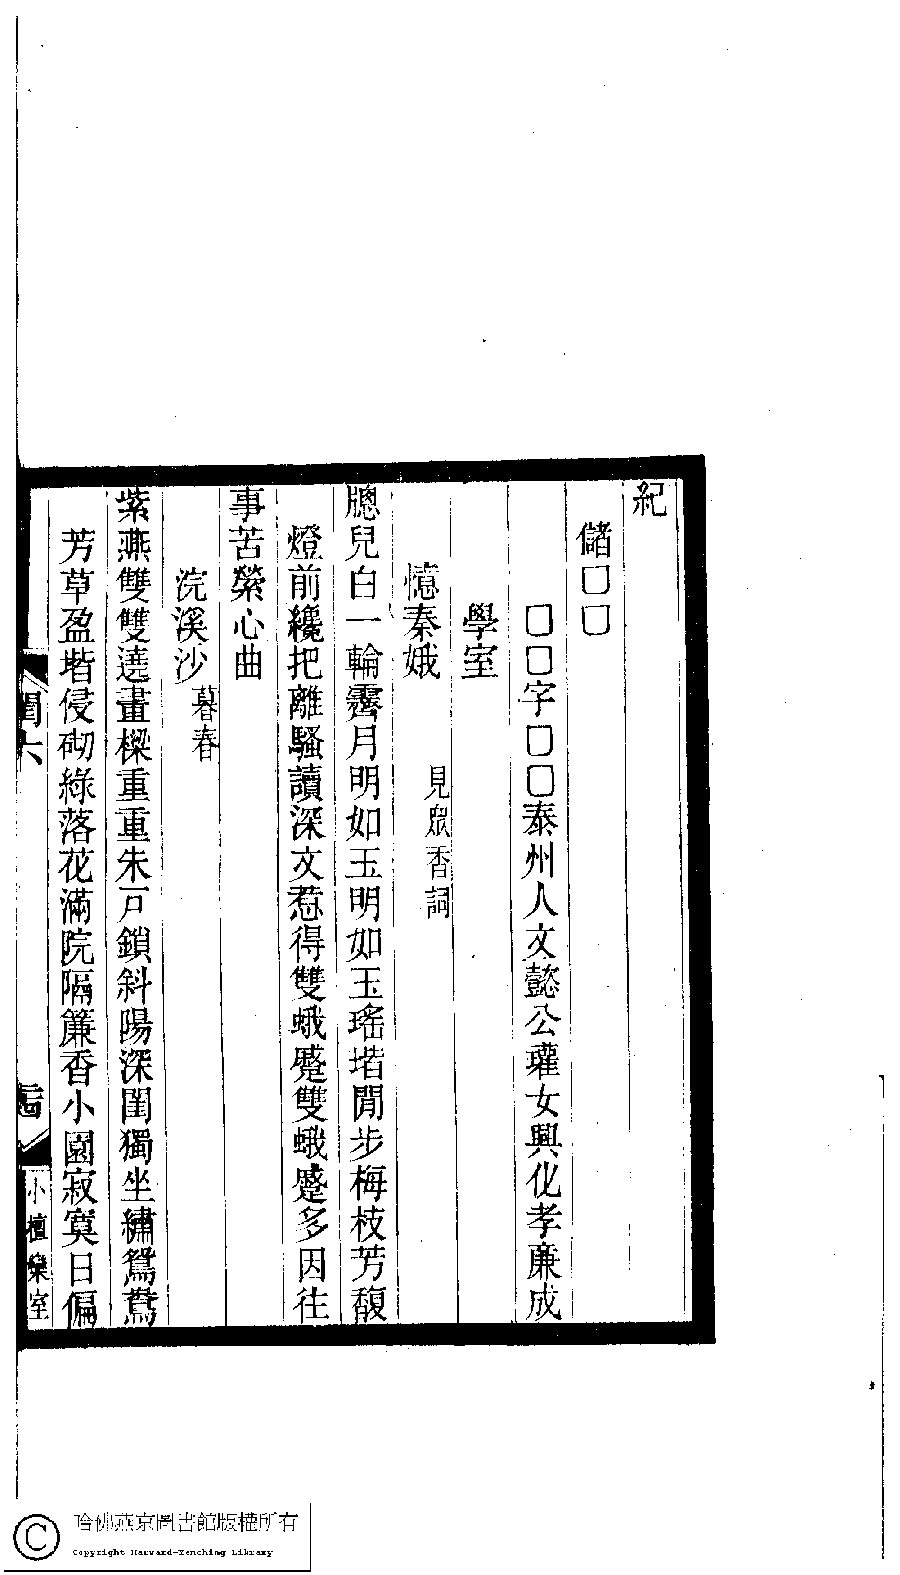 紀
儲□□
□□字□□泰州人文懿公瓘女興化孝廉成
學室
憶秦娥
見眾香詞
牕兒白一輪霽月明如玉明如玉瑤堦閒步梅枝芳馥
燈前纔把離騷讀深文惹得雙蛾蹙雙蛾蹙多因往
事苦縈心曲
浣溪沙 暮春
紫燕雙雙遶畫樑重重朱戸鎖斜陽深閨獨坐繡鴛鴦
芳草盈堦侵砌綠落花滿院隔簾香小園寂寞日偏
閨六
小檀欒室
哈佛燕京圖書館版權所有
Copyright Harvard-Yenching Library